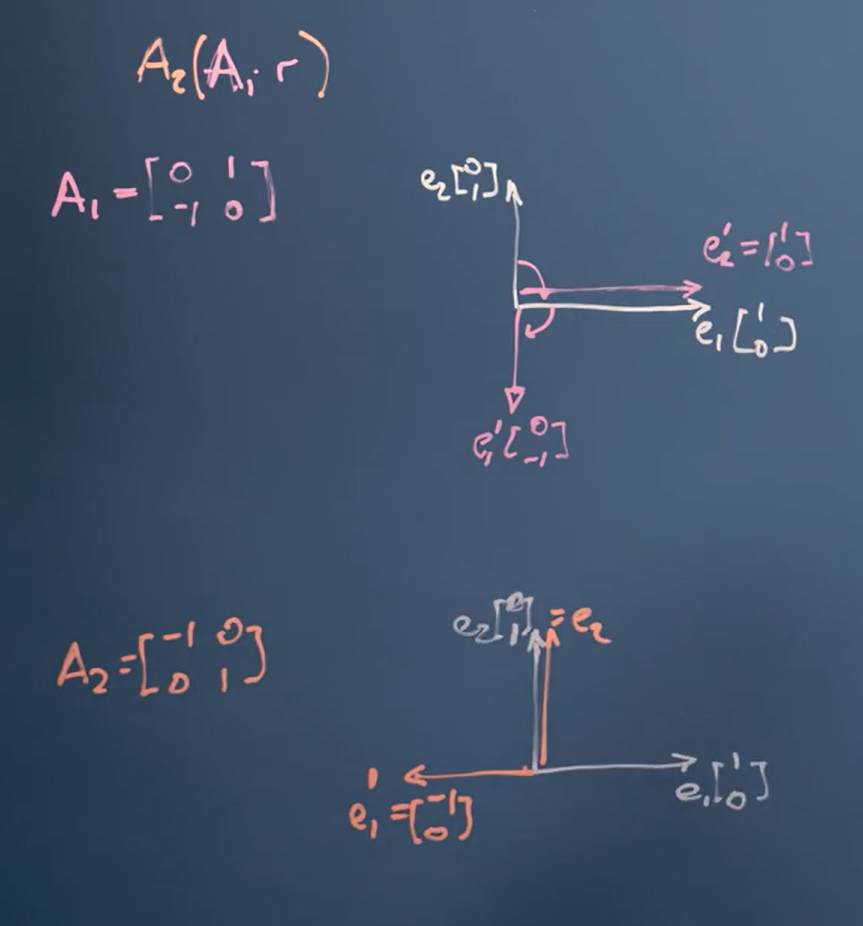 A₂(A₁ r)
A₁ = [0 1; -1 0]
e₂[0; 1]
e₂' = [1; 0]
e₁[1; 0]
e₁'[0; -1]
A₂ = [-1 0; 0 1]
e₂[0; 1] = e₂
e₁' = [-1; 0]
e₁[1; 0]